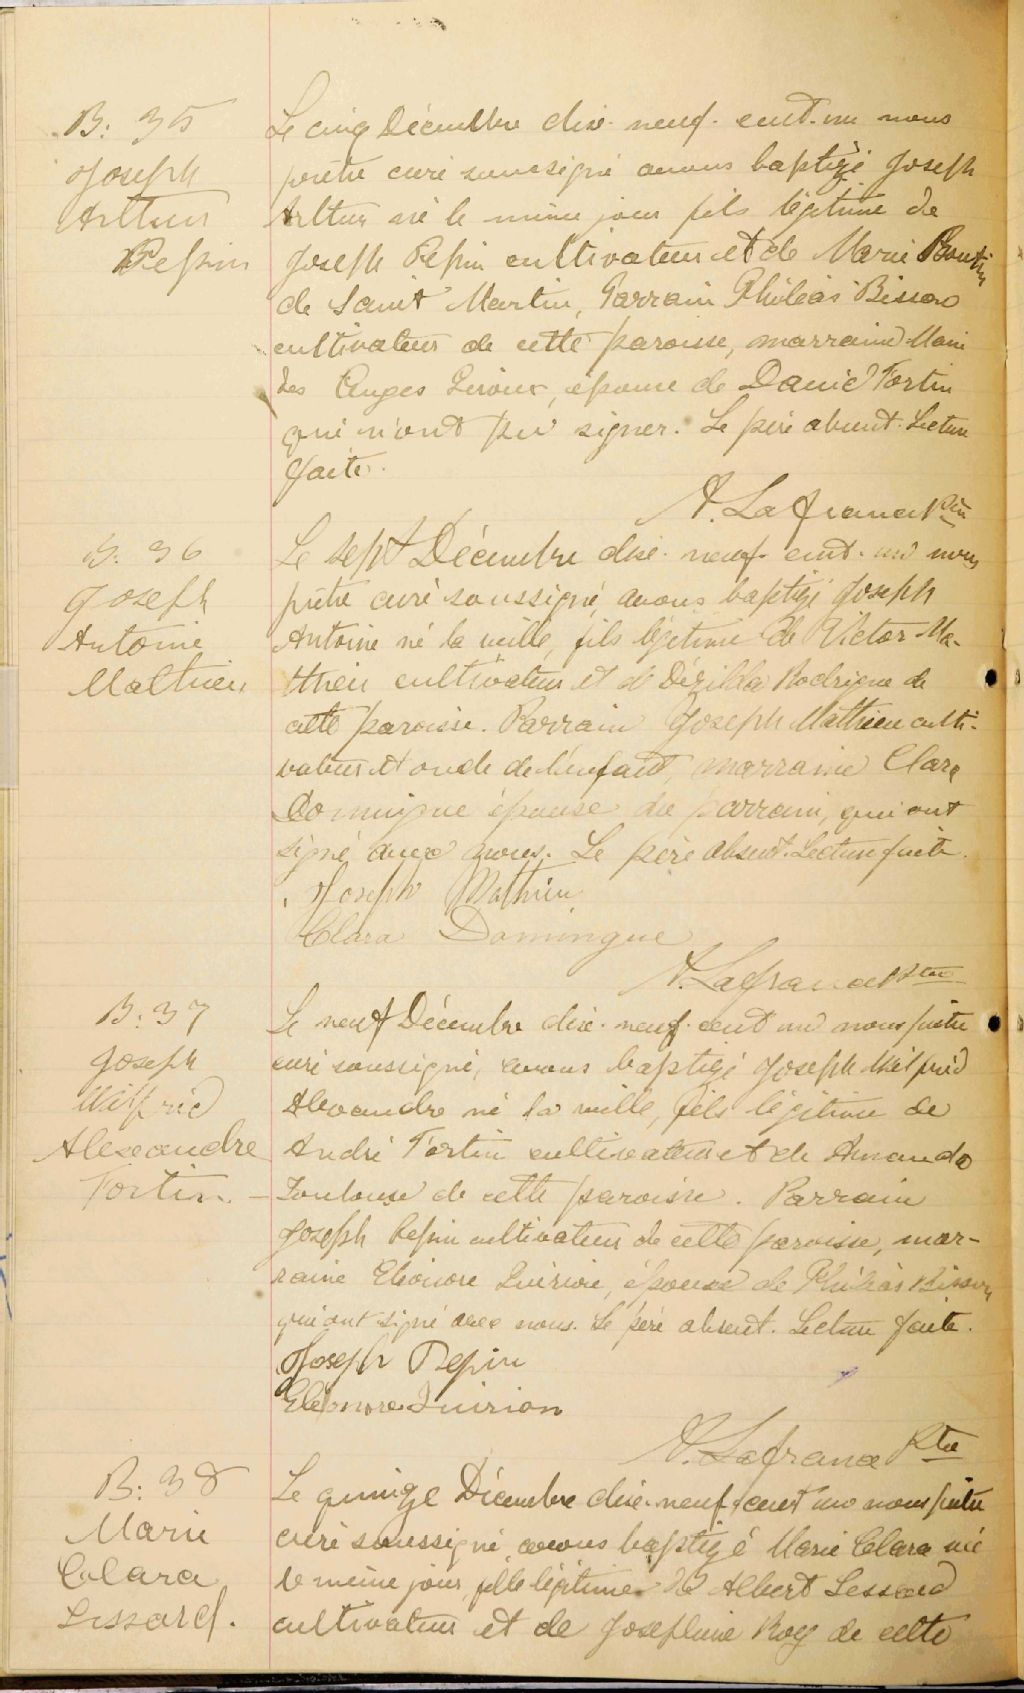 B: 35
Joseph
Arthur
Pepin
Le cinq Décembre dix-neuf-cent-un nous
prêtre curé soussigné avons baptizé Joseph
Arthur né le même jour fils légitime de
Joseph Pepin cultivateur et de Marie Boutin
de Saint Martin, Parrain Philéas Bisson
cultivateur de cette paroisse, marraine Marie
des Anges Giroux, épouse de David Fortin
qui n'ont pu signer. Le père absent. Lecture
faite.
A. Lafrance Ptre
B: 36
Joseph
Antoine
Mathieu
Le sept Décembre dix-neuf-cent-un nous
prêtre curé soussigné, avons baptizé Joseph
Antoine né la veille, fils légitime de Victor Ma-
thieu cultivateur et de Dézilda Rodrigue de
cette paroisse. Parrain Joseph Mathieu culti-
vateur et oncle de l'enfant, marraine Clara
Domingue épouse du parrain, qui ont
signé avec nous. Le père absent. Lecture faite.
Joseph Mathieu
Clara Domingue
A. Lafrance Ptre
B: 37
Joseph
Wilfrid
Alexandre
Fortin.
Le neuf Décembre dix-neuf-cent un nous prêtre
curé soussigné, avons baptizé Joseph Wilfrid
Alexandre né la veille, fils légitime de
André Fortin cultivateur et de Amanda
Toulouse de cette paroisse. Parrain
Joseph Pepin cultivateur de cette paroisse, mar-
raine Eléonore Quirion, épouse de Philéas Bisson
qui ont signé avec nous. Le père absent. Lecture faite.
Joseph Pepin
Eléonore Quirion
A. Lafrance Ptre
B: 38
Marie
Clara
Lessard.
Le quinze Décembre dix-neuf-cent un nous prêtre
curé soussigné avons baptizé Marie Clara née
le même jour, fille légitime de Albert Lessard
cultivateur et de Josephine Roy de cette